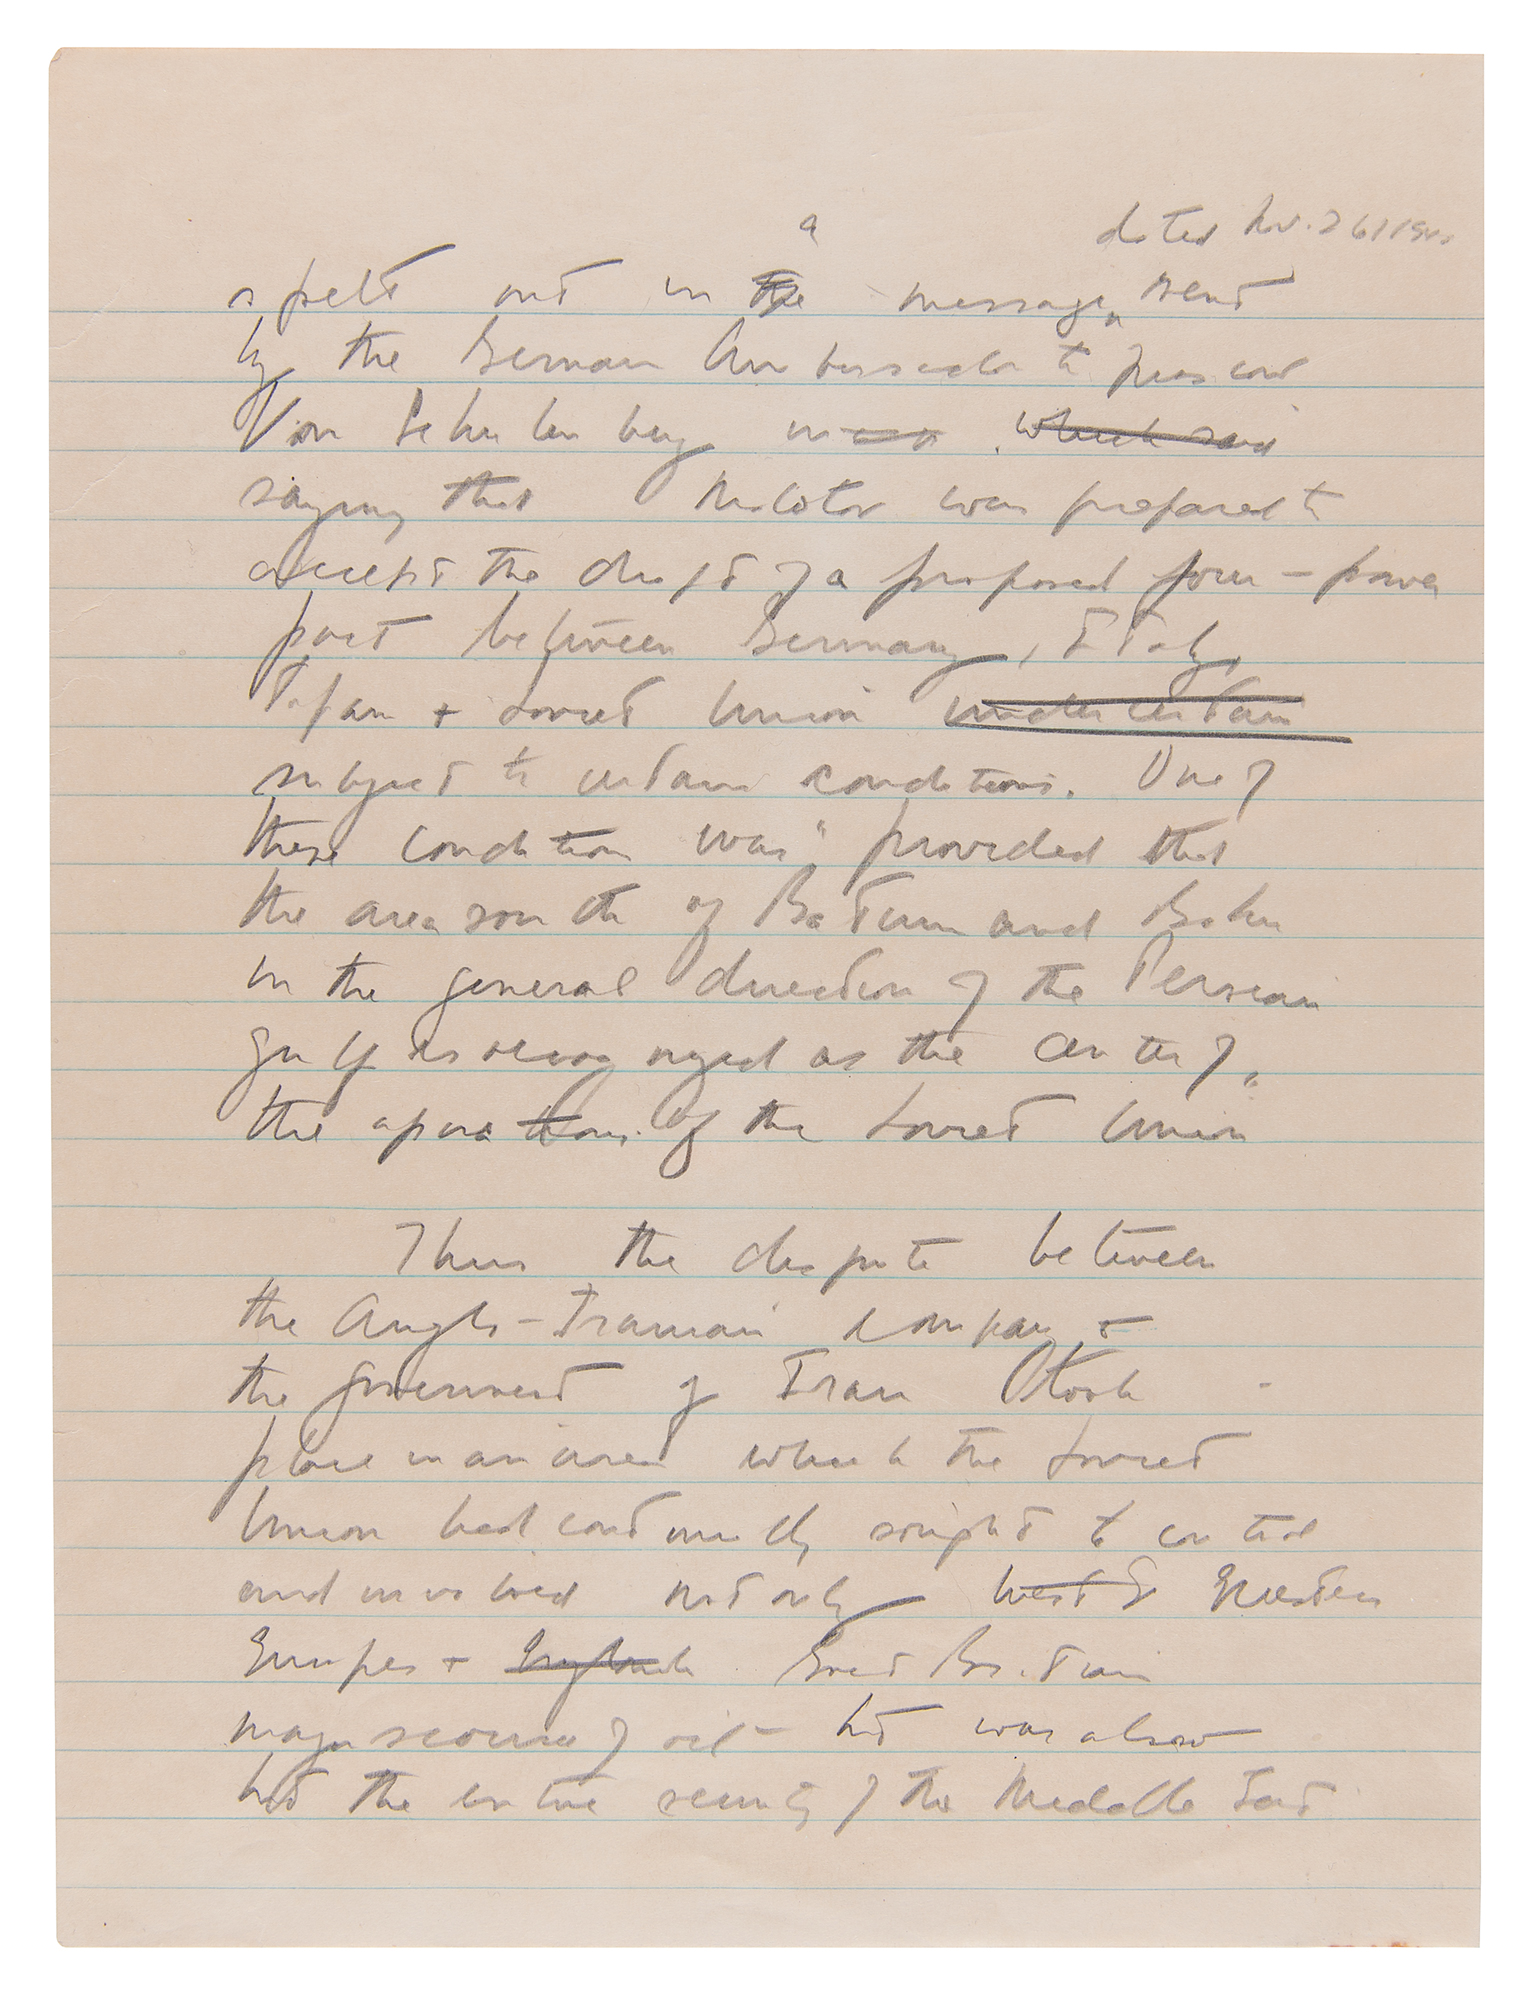 a
dated Nov. 26, 1940
spelt out in the message sent
by the German Ambassador to Moscow
Von Schulenberg which said
saying that Molotov was prepared to
accept the draft of a proposed four-power
pact between Germany, Italy,
Japan + Soviet Union under certain
subject to certain conditions. One of
these condition was "provided that
the area south of Batum and Baku
in the general direction of the Persian
gulf is recognized as the center of
the aspirations of the Soviet Union
Thus the dispute between
the Anglo-Iranian company +
the government of Iran took
place in an area which the Soviet
Union had continually sought to control
and involved not only West Western
Europes + England Great Britain
major source of oil - but was also
but the entire security of the Middle East